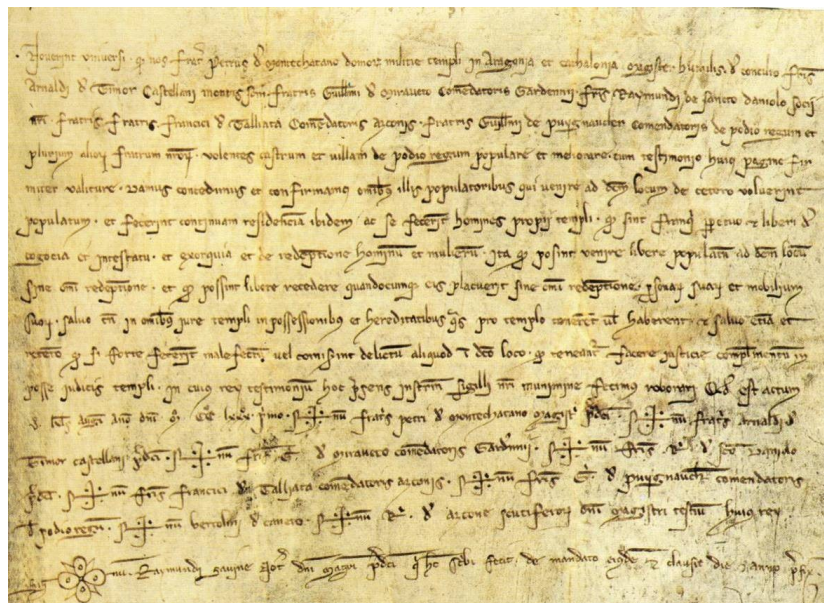 Noverint universi · qd nos frater Petrus d Montechatano domor militie templi in Aragonia et cathalonia magister humilis · d consilio fris
Arnaldi d Timor Castellani montis soni · fratris Guillmi d Miraveto Comedatoris Gardennii · fris Raymundi de sancto daniolo socii
nri · fratris · fratris · francici d Talliata Comedatoris arconis · fratris Guillmi de Puygnaucher Comendatoris de podio regum et
plurium alior fratrum nror · volentes castrum et villam de podio regum populare et meliorare · cum testimonio huius pagine fir
miter valiture · Damus concedimus et confirmamus omibus illis populatoribus qui venire ad dcm locum de cetero voluerint
populatum · et fecerint continuam residencia ibidem ac se fecerit homines propii templi · qd sint franqi ppetuo et liberi d
cogocia et intestatu · et exorquia et de redeptione hominum et mulierum · ita qd possint venire libere populatu ad dcm locu
sine omi redeptione · et qd possint libere recedere quandocumque eis placuerit sine omi redeptione · psonar suar et mobilium
suor · salvo tn in omibus jure templi in possessionibus et hereditatibus qs pro templo teneret ul haberent · et salvo etia et
retento qd si forte fecerint malefactu vel comisint delictum aliquod i dco loco · qd teneant facere justicie complimentum in
posse judicis templi · in cuius rey testimoniu hoc psens instrm sigilli nri munimine fecimus roborari Qd est actum
· kls aug ano dni · mo · CCo Lxxxo primo · sig+num fratris petri d montechatano magistri pdci · sig+num fratris arnaldi d
Timor castellani pdci · sig+num fris G · d miraveto comedatoris Gardennii · sig+num fris R · d sco daniolo
pdci · sig+num fris francici d Talliata comedatoris arconis · sig+num fris G · d puygnaucher comendatoris
d podio regum · sig+num bertolini d caneto · sig+num R · d arcone scutiferor dni magistri testiu huius rey
sig+num · Raymundi notr dni magistri pdci q hc scbi fecit · de mandato eiusde et clausit die et anno pfix ·